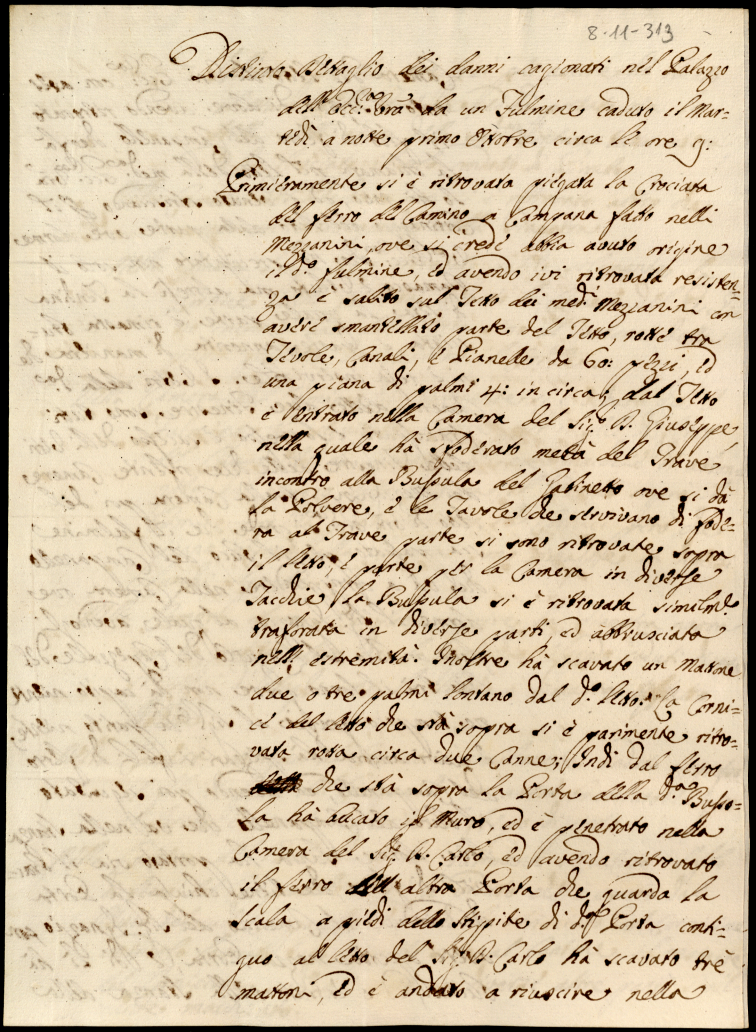 8-11-313
Distinto Dettaglio dei danni cagionati nel Palazo
dell'Ecc.ma da un Fulmine caduto il Mar-
tedi a notte primo Ottobre circa le ore 9:
Primieramente si è ritrovata piegata la Crociata
del ferro del Camino a Campana fatto nelli
Mezzanini ove si crede abbia avuto origine
il d.o fulmine, ed avendo ivi ritrovata resisten-
za è salito sul Tetto dei med.i Mezzanini con
avere smantellato parte del Tetto, rotte tra
Tevole, Canali, e Pianelle da 60: pezzi, ed
una piana di palmi 4: in circa, dal Tetto
è entrato nella Camera del Sig.r D. Giuseppe,
nella quale hà sfoderato metà del Trave
incontro alla Bussula del Gabinetto ove si dà
la Polvere, è le Tavole che servivano di fode-
ra al Trave parte si sono ritrovate sopra
il letto, è parte per la Camera in diverse
Tacchie, la Bussula si è ritrovata similm.e
traforata in diverse parti, ed abbrusciata
nell'estremità. Inoltre hà scavato un Mattone
due o tre palmi lontano dal d.o letto: La Corni-
ce del letto che stà sopra si è parimente ritro-
vata rotta circa due Canne; Indi dal ferro
che stà sopra la Porta della d.a Busso-
la hà bucato il Muro, ed è penetrato nella
Camera del Sig.r D. Carlo, ed avendo ritrovato
il ferro altra Porta che guarda la
Scala a piedi dello Stipite di d.a Porta conti-
guo al letto del Sig.r D. Carlo hà scavato trè
mattoni, ed è andato a riuscire nella